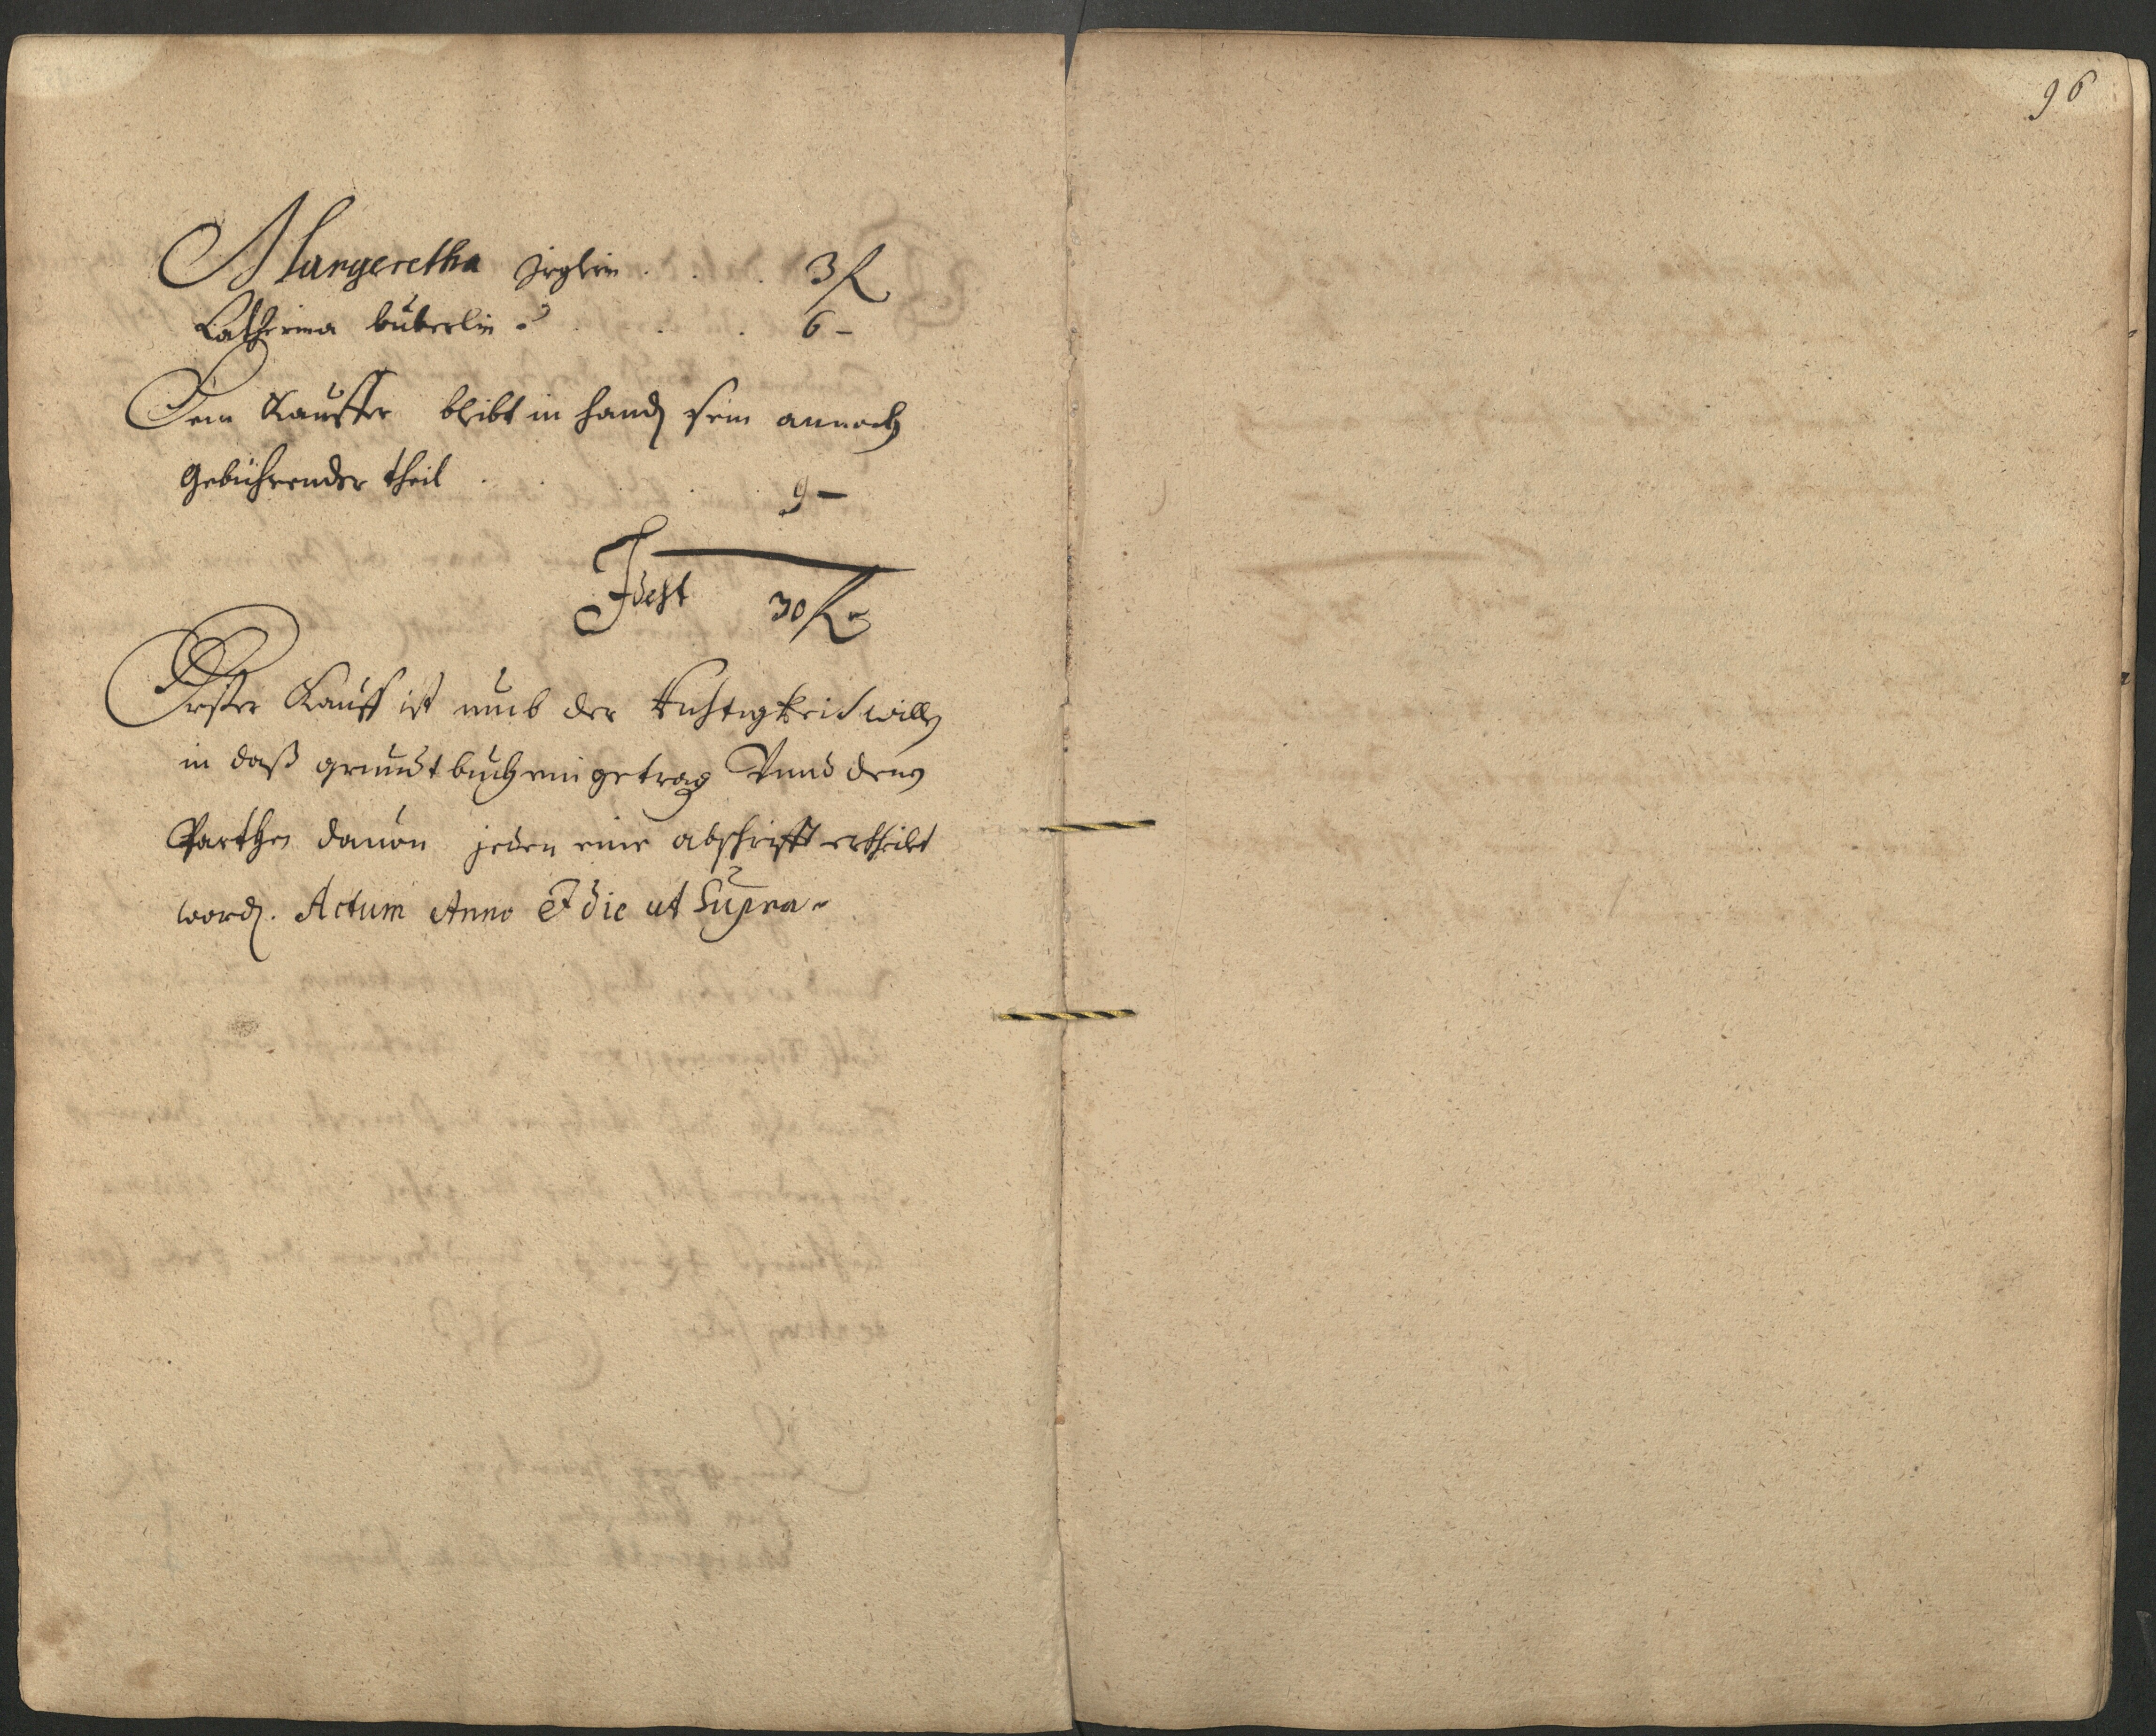 Margeretha Jrglin . . . 3 fl
Catherina büberlin . . . 6 –
Dem Kauffer bleibt in handen sein annoch
gebührender theil . . . 9 –
Idest 30 fl
Erster Kauff ist umb der Richtigkeid willen
in daß grundtbuch eingetragen Vnnd denen
Parthen dauon jeden eine abschrifft ertheilet
worden. Actum Anno Et die ut Supra
96